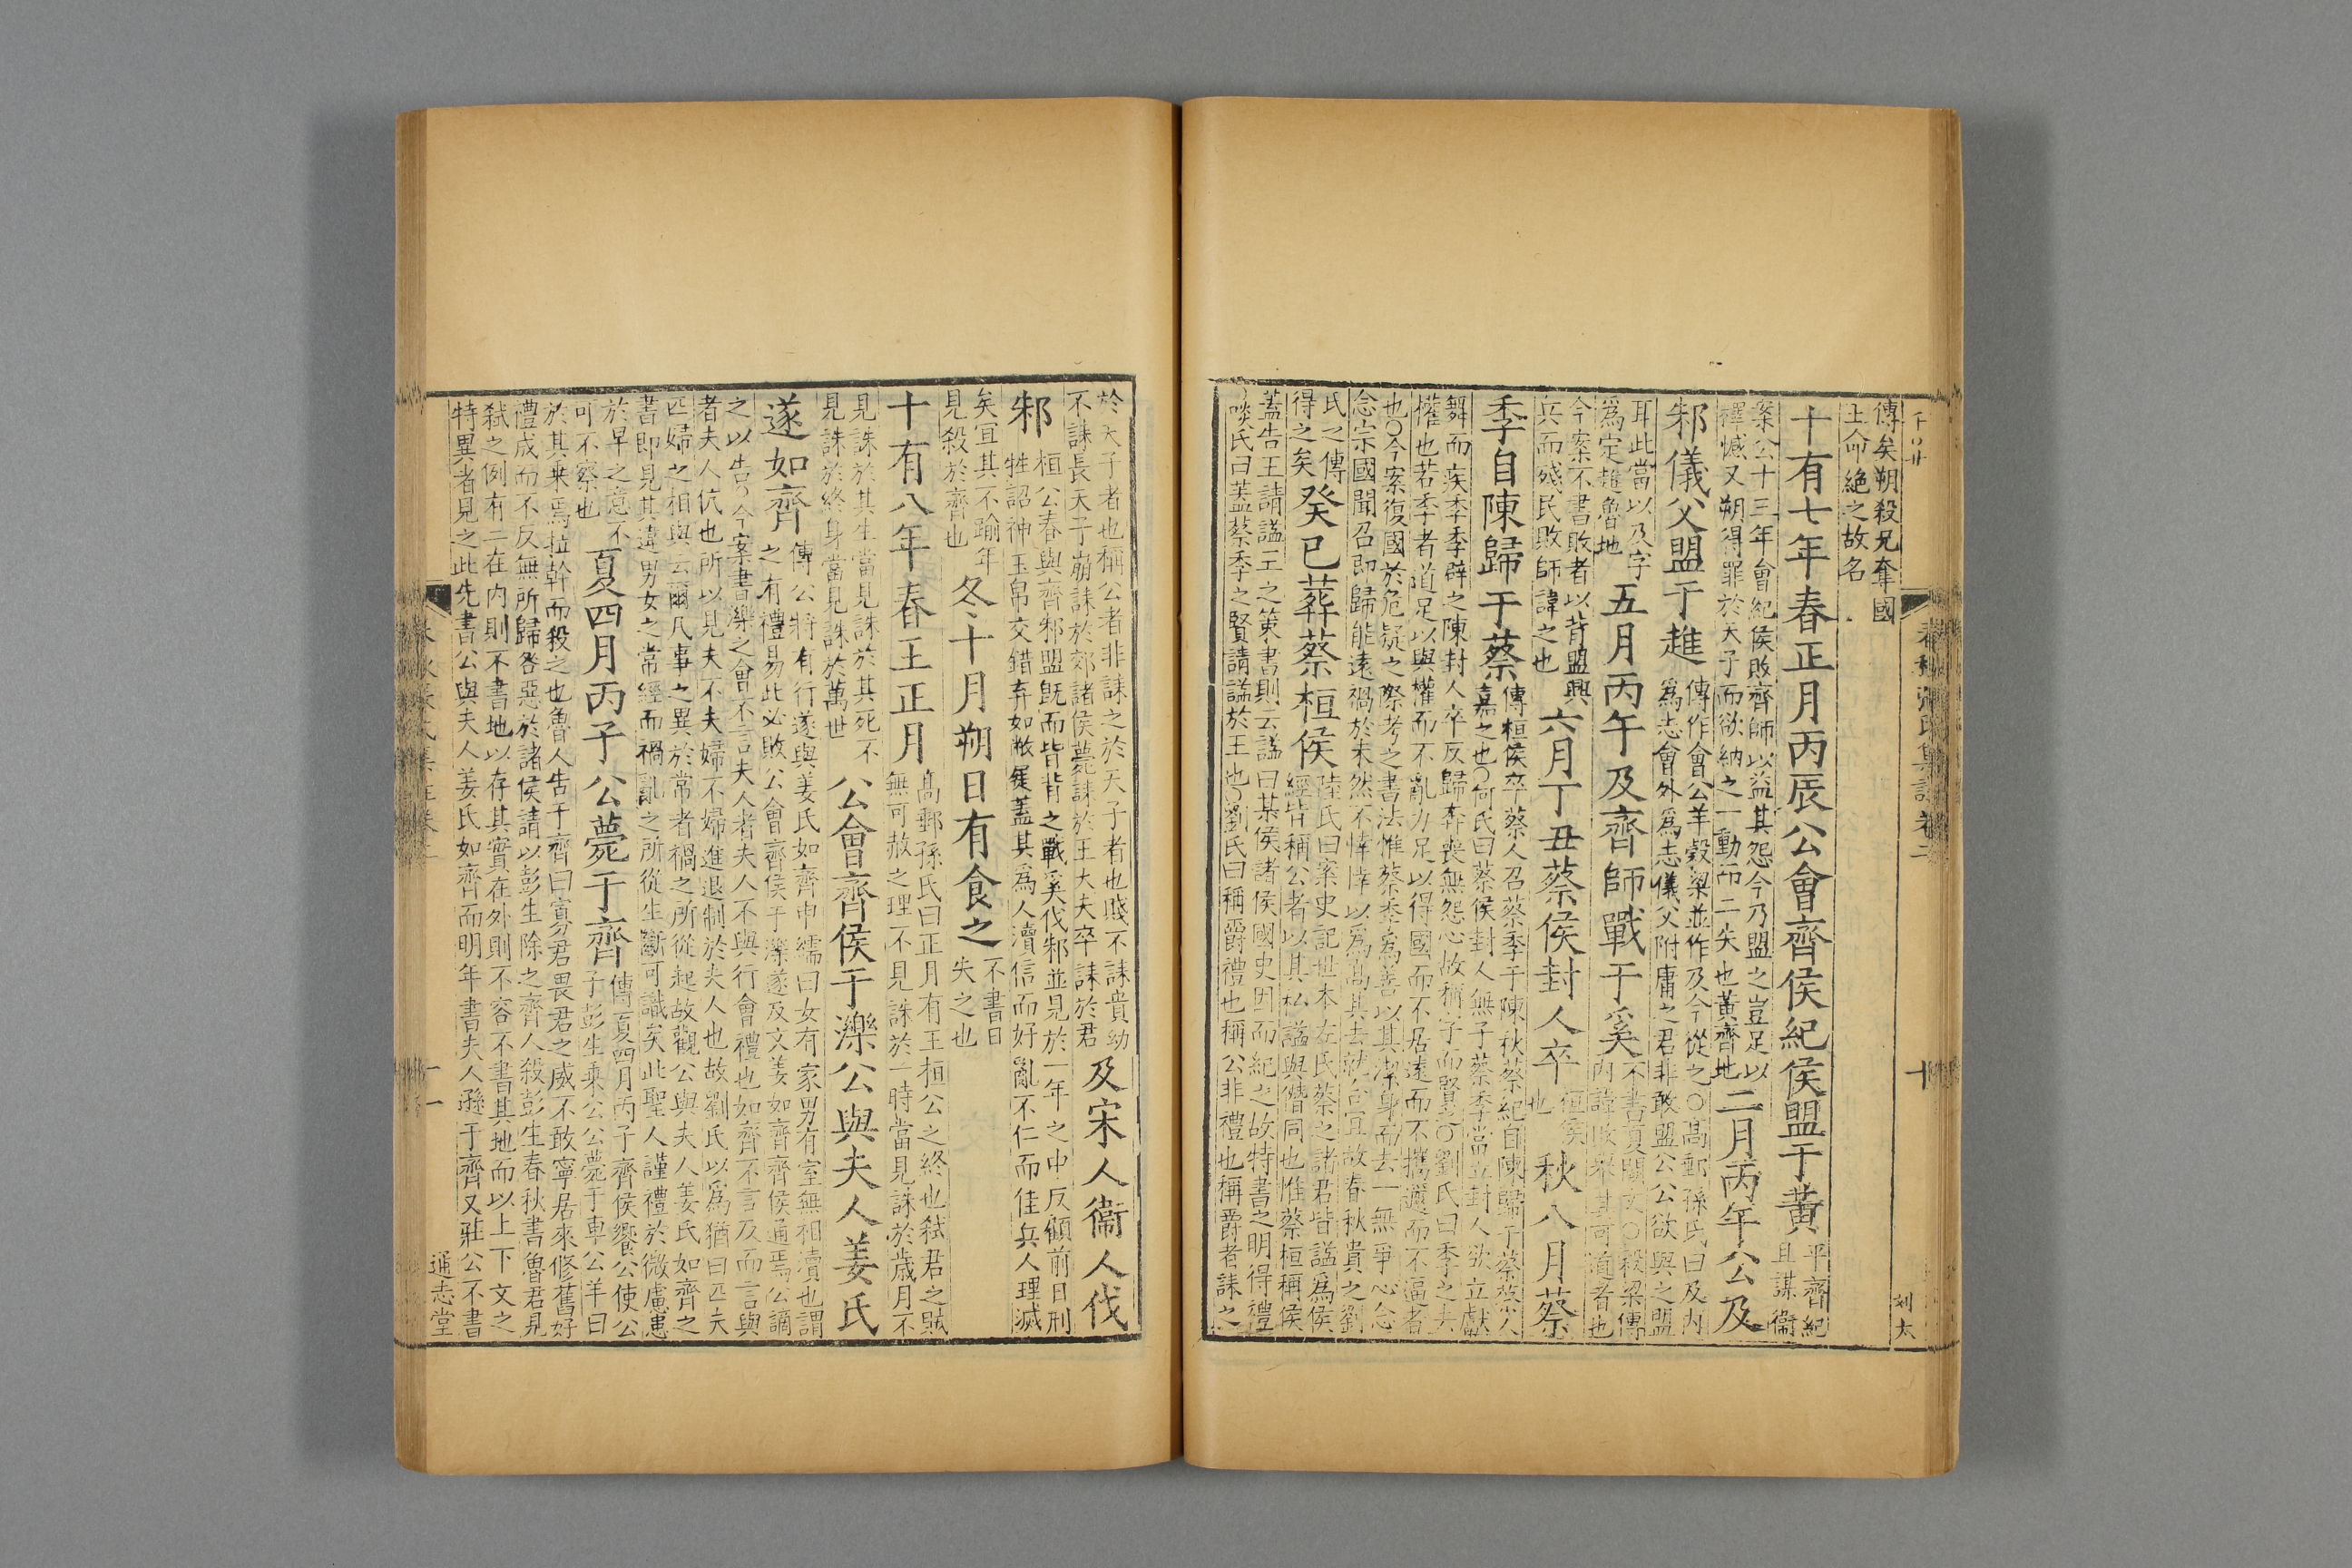 傳矣朔殺兄奪國
王命絶之故名
十有七年春正月丙辰公會齊侯紀侯盟于黃
平齊紀
且謀衞
案公十三年會紀侯敗齊師以益其怨今乃盟之豈足以
釋憾又朔得罪於天子而欲納之一動而二失也黃齊地
二月丙午公及
邾儀父盟于趡
傳作會公羊穀梁並作及今從之○高郵孫氏曰及内
爲志會外爲志儀父附庸之君非敢盟公公欲與之盟
耳此當以及字
爲定趡魯地
五月丙午及齊師戰于奚
不書夏闕文○穀梁傳
内諱敗舉其可道者也
今案不書敗者以背盟興
兵而殘民敗師諱之也
六月丁丑蔡侯封人卒
桓侯
也
秋八月蔡
季自陳歸于蔡
傳桓侯卒蔡人召蔡季于陳秋蔡季自陳歸于蔡蔡人
嘉之也○何氏曰蔡侯封人無子蔡季當立封人欲立獻
舞而疾季季辟之陳封人卒反歸奔喪無怨心故稱字而賢之○劉氏曰季之去
權也若季者道足以與權而不亂力足以得國而不居遠而不攜邇而不逼者
也○今案復國於危疑之際考之書法惟蔡季爲善以其潔身而去一無爭心念
念宗國聞召即歸能遠禍於未然不悻悻以爲高其去就合宜故春秋貴之劉
氏之傳
得之矣
癸巳葬蔡桓侯
陸氏曰案史記世本左氏蔡之諸君皆謚爲侯
經皆稱公者以其私謚與僭同也惟蔡桓稱侯
蓋告王請謚王之策書則云謚曰某侯諸侯國史因而紀之故特書之明得禮
○啖氏曰蓋蔡季之賢請謚於王也○劉氏曰稱爵禮也稱公非禮也稱爵者誄之
春秋張氏集註卷二
十
刘太
於天子者也稱公者非誄之於天子者也賤不誄貴幼
不誄長天子崩誄於郊諸侯薨誄於王大夫卒誄於君
及宋人衞人伐
邾
桓公春與齊邾盟既而皆背之戰奚伐邾並見於一年之中反顧前日刑
牲詔神玉帛交錯弃如敝屣蓋其爲人瀆信而好亂不仁而佳兵人理滅
矣宜其不踰年
見殺於齊也
冬十月朔日有食之
不書日
失之也
十有八年春王正月
高郵孫氏曰正月有王桓公之終也弑君之賊
無可赦之理不見誅於一時當見誅於歳月不
見誅於其生當見誅於其死不
見誅於終身當見誅於萬世
公會齊侯于濼公與夫人姜氏
遂如齊
傳公將有行遂與姜氏如齊申繻曰女有家男有室無相瀆也謂
之有禮易此必敗公會齊侯于濼遂及文姜如齊齊侯通焉公謫
之以告○今案書濼之會不言夫人者夫人不與行會禮也如齊不言及而言與
者夫人伉也所以見夫不夫婦不婦進退制於夫人也故劉氏以爲猶曰匹夫
匹婦之相與云爾凡事之異於常者禍之所從起故觀公與夫人姜氏如齊之
書即見其違男女之常經而禍亂之所從生斷可識矣此聖人謹禮於微慮患
於早之意不
可不察也
夏四月丙子公薨于齊
傳夏四月丙子齊侯饗公使公
子彭生乗公公薨于車公羊曰
於其乗焉拉幹而殺之也魯人告于齊曰寡君畏君之威不敢寧居來修舊好
禮成而不反無所歸咎惡於諸侯請以彭生除之齊人殺彭生春秋書魯君見
弑之例有二在内則不書地以存其實在外則不容不書其地而以上下文之
特異者見之此先書公與夫人姜氏如齊而明年書夫人遜于齊又莊公不書
通志堂